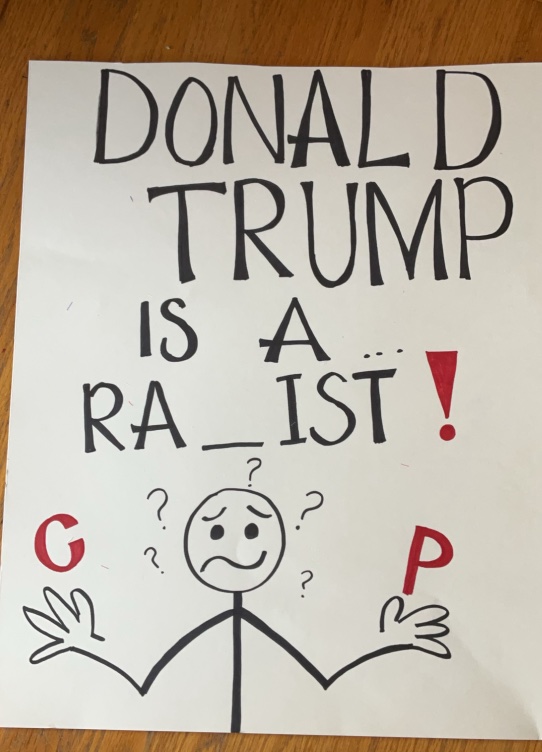 DONALD
TRUMP
IS A ...
RA_IST!
?
? ?
C P
? ?